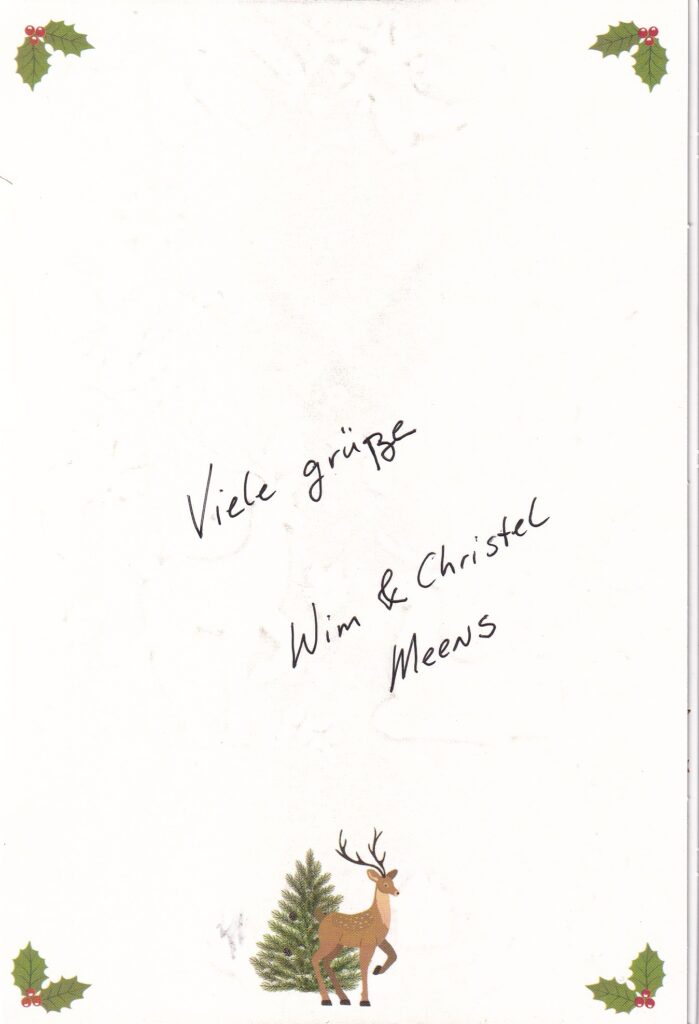 Viele grüße
Wim & Christel
Meens